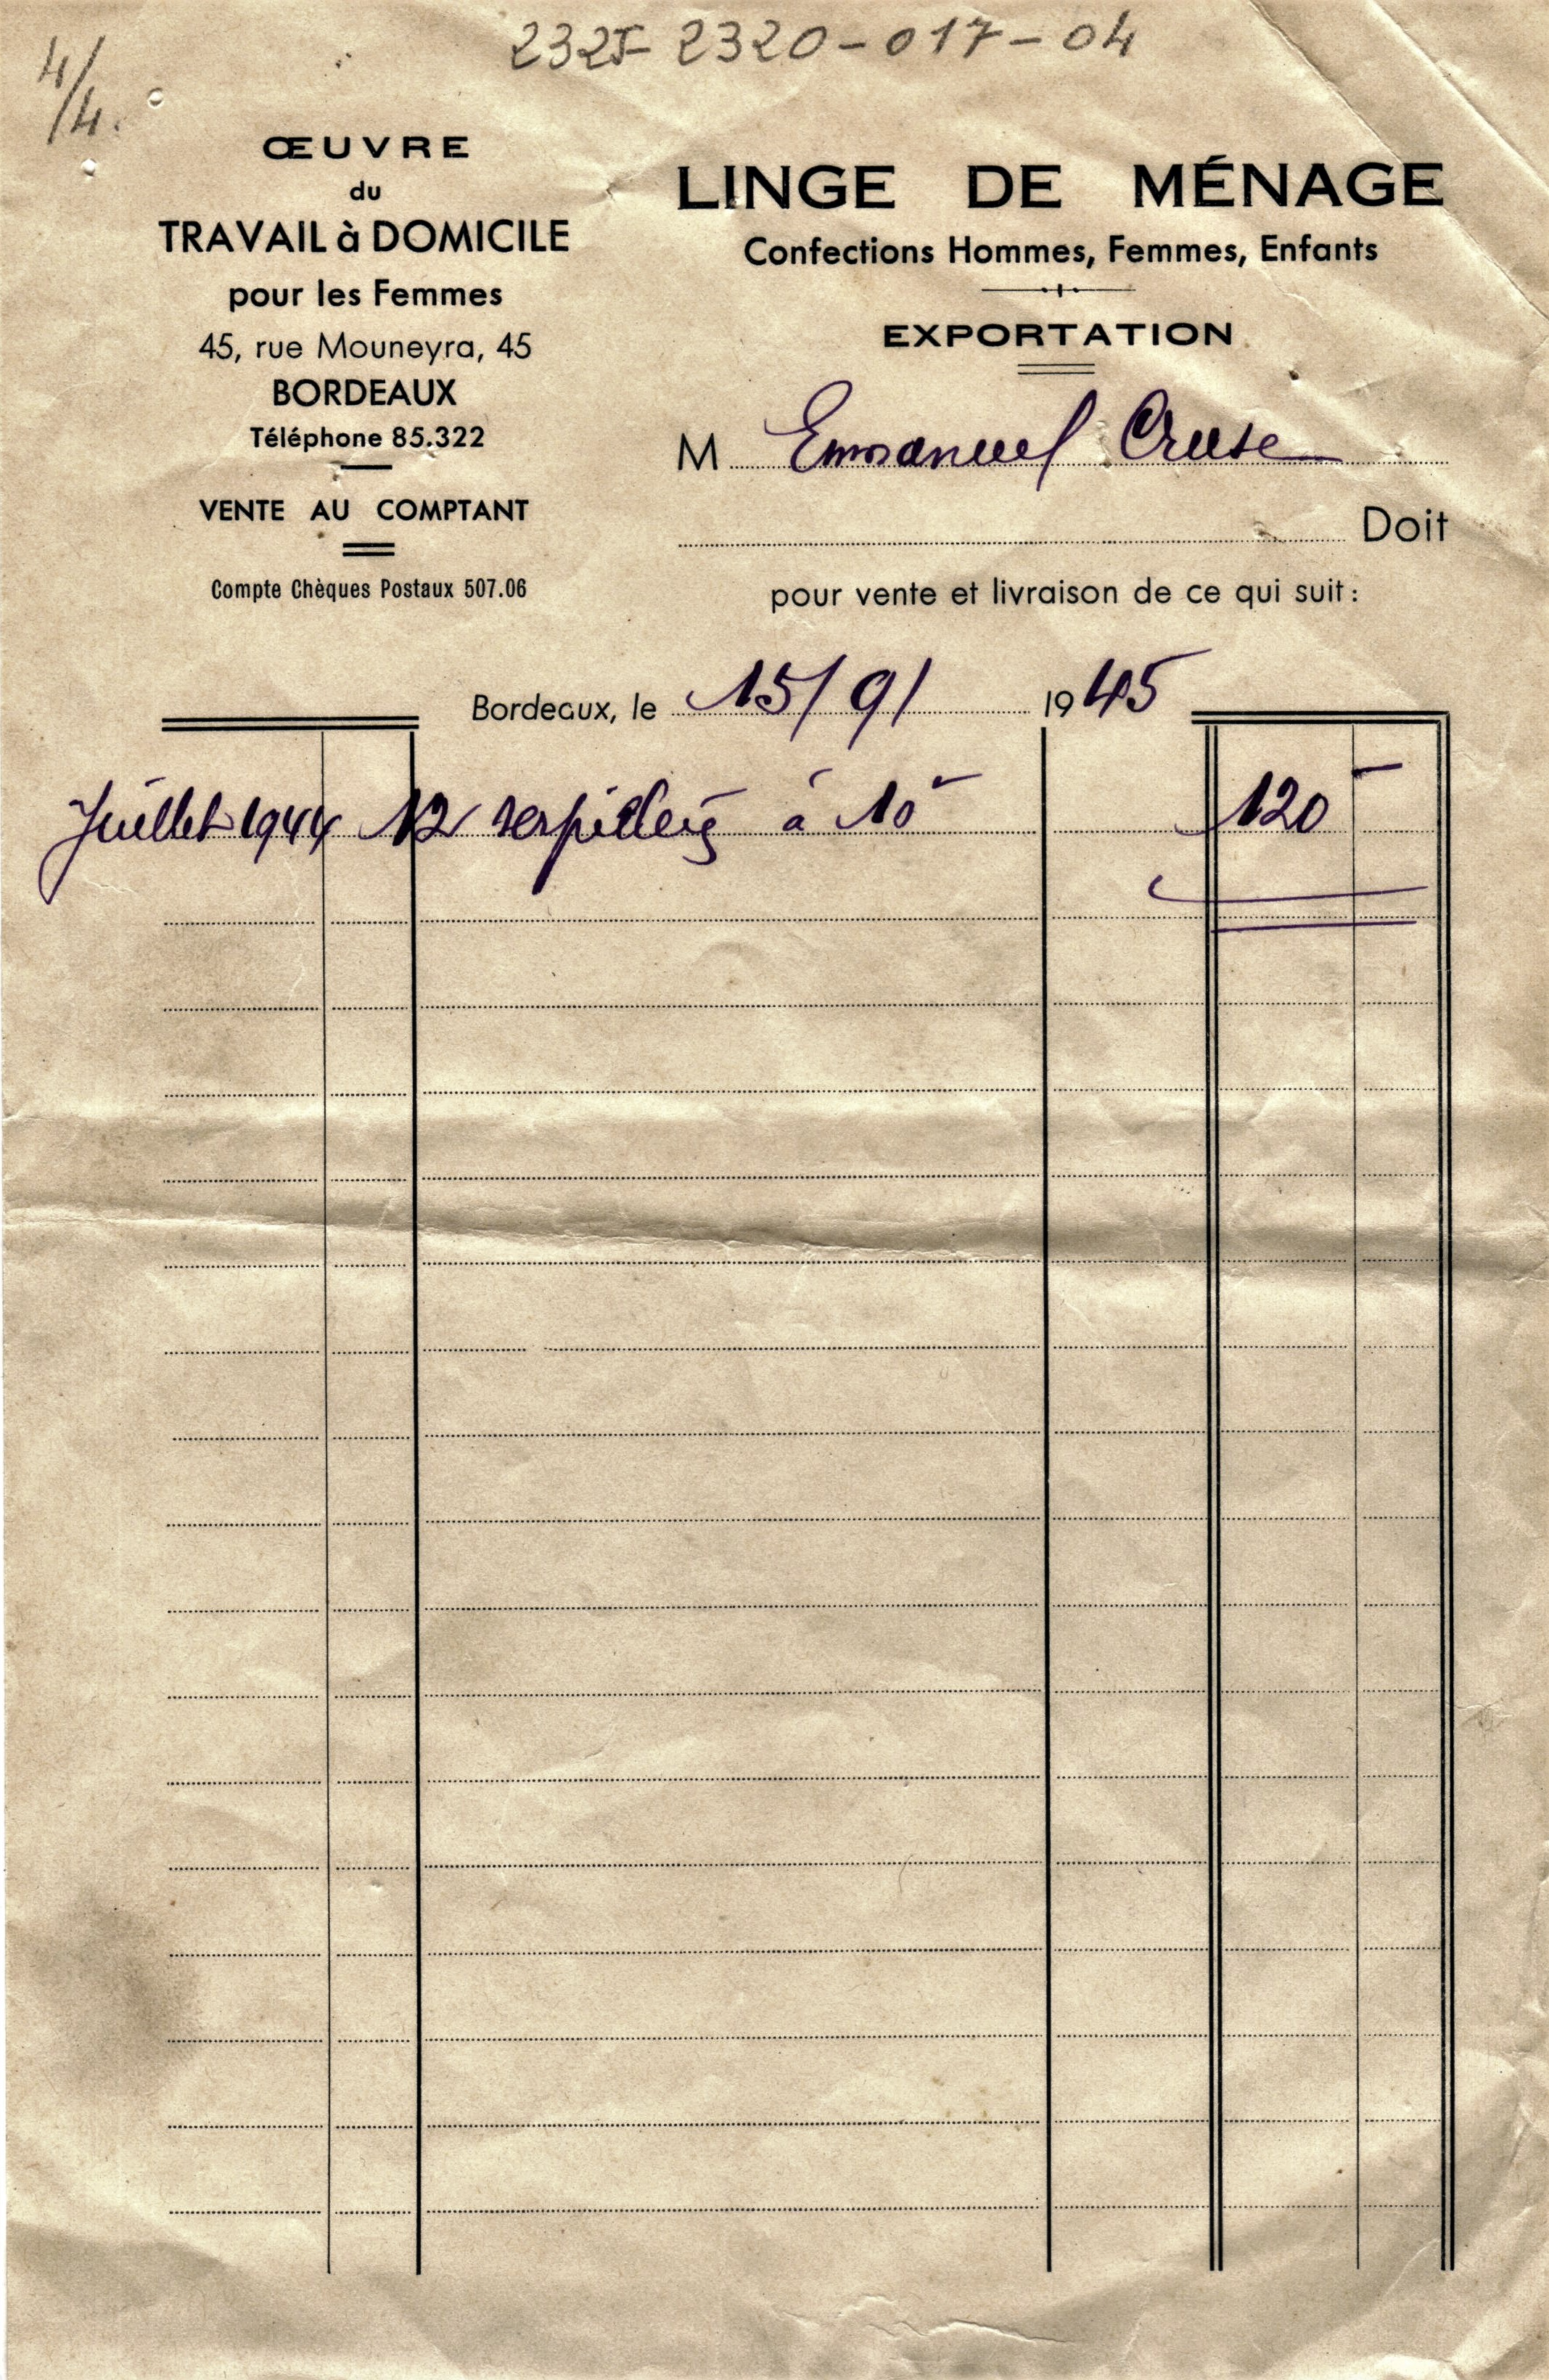 232J-2320-017-04
4/4.
ŒUVRE
du
TRAVAIL à DOMICILE
pour les Femmes
45, rue Mouneyra, 45
BORDEAUX
Téléphone 85.322
VENTE AU COMPTANT
Compte Chèques Postaux 507.06
LINGE DE MÉNAGE
Confections Hommes, Femmes, Enfants
EXPORTATION
M Emmanuel Cruse
Doit
pour vente et livraison de ce qui suit :
Bordeaux, le 15/9/ 1945
Juillet 1944 12 à 10 - 120 -